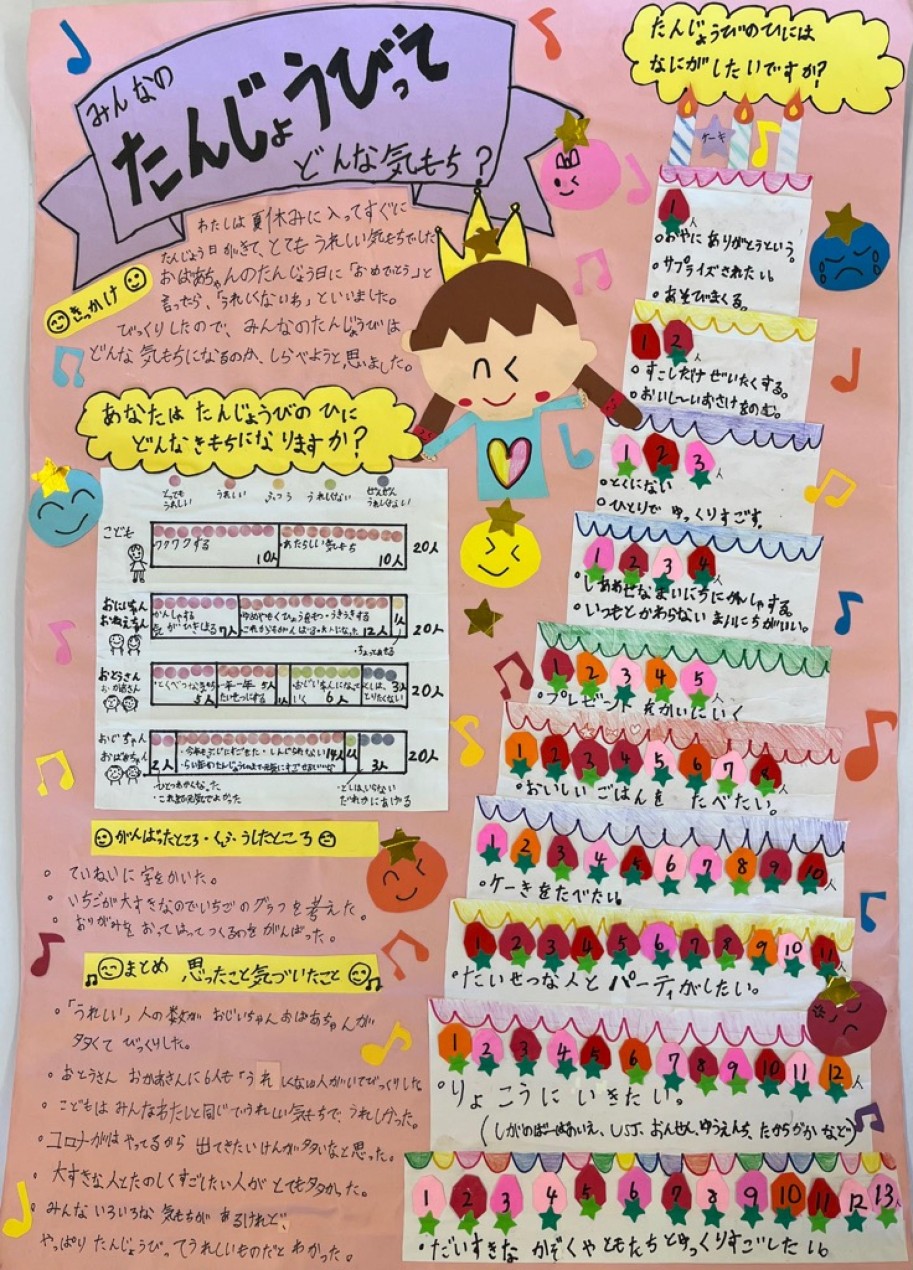 みんなの
たんじょうびって
どんな気もち？
わたしは夏休みに入ってすぐに
たんじょう日がきて、とてもうれしい気もちでした
おばあちゃんのたんじょう日に「おめでとう」と
言ったら、「うれしくないわ」といいました。
びっくりしたので、みんなのたんじょうびは
どんな気もちになるのか、しらべようと思いました。
きっかけ
あなたはたんじょうびのひに
どんなきもちになりますか？
とってもうれしい
うれしい
ふつう
うれしくない
ぜんぜんうれしくない
こども
ワクワクする
10人
あたらしい気もち
10人
20人
おにいちゃん
おねえちゃん
かんしゃする
気がひきしまる 7人
12人
1人
20人
おとうさん
おかあさん
とくべつな気もち
5人
一年一年 5人
たいせつにする
1人
おじいちゃんになって
いく 6人
3人
20人
おじいちゃん
おばあちゃん
2人
14人
1人
3人
20人
・ひとつあかくなった
・これまで元気でよかった
・としはいらない
だれかにあげる
がんばったところ・くふうしたところ
・ていねいに字をかいた。
・いちごが大すきなのでいちごのグラフを考えた。
・おりがみをおってはってつくるのをがんばった。
まとめ 思ったこと気づいたこと
・「うれしい」人の数がおじいちゃんおばあちゃんが
多くてびっくりした。
・おとうさん おかあさんに6人も「うれしくない」人がいてびっくりした
・こどもはみんなわたしと同じでうれしい気もちで、うれしかった。
・コロナがはやってるから 出てきたいけんが多いなと思った。
・大すきな人とたのしくすごしたい人がとても多かった。
・みんないろいろな気もちがあるけれど、
やっぱりたんじょうびってうれしいものだとわかった。
たんじょうびのひには
なにがしたいですか？
ケーキ
1人
・おやにありがとうという。
・サプライズされたい。
・あそびまくる。
1 2人
・すこしだけぜいたくする。
・おいし〜いおさけをのむ。
1 2 3人
・とくにない
・ひとりでゆっくりすごす。
1 2 3 4人
・しあわせなまいにちにかんしゃする。
・いつもとかわらないまいにちがいい。
1 2 3 4 5人
・プレゼントをかいにいく
1 2 3 4 5 6 7 8人
・おいしいごはんをたべたい。
1 2 3 4 5 6 7 8 9 10人
・ケーキをたべたい。
1 2 3 4 5 6 7 8 9 10 11人
・たいせつな人とパーティがしたい。
1 2 3 4 5 6 7 8 9 10 11 12人
・りょこうにいきたい。
(しがのばーばあいえ、USJ、おんせん、ゆうえんち、たからづかなど)
1 2 3 4 5 6 7 8 9 10 11 12 13人
・だいすきなかぞくやともだちとゆっくりすごしたい。